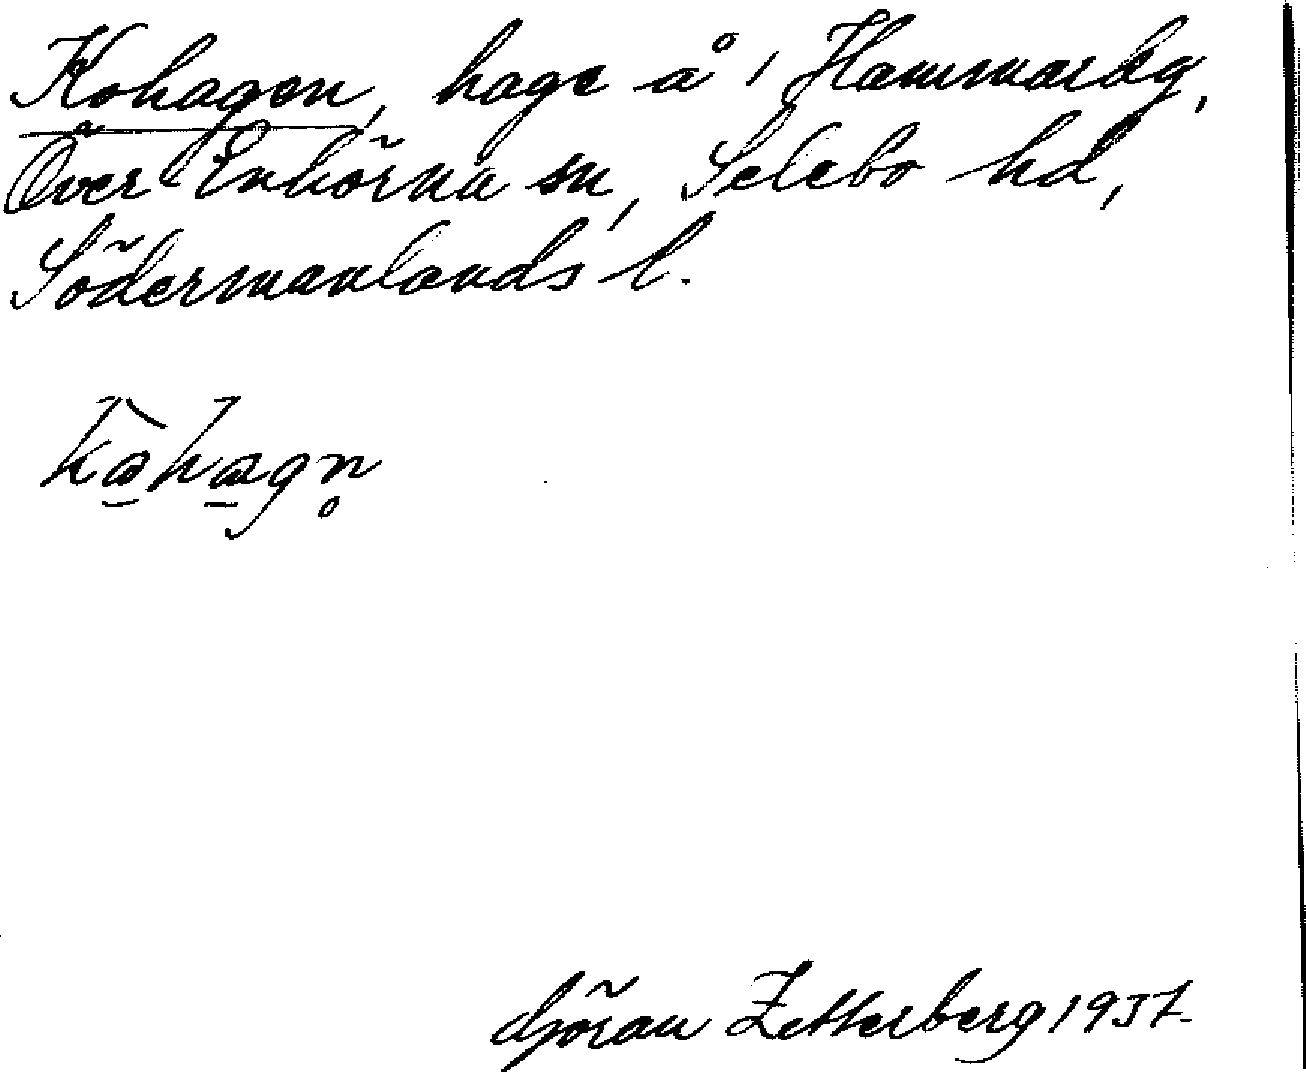 Kohagen, hage å 1 Hammarby,
Över Enhörna sn, Selebo hd,
Södermanlands l.
kꜵ̀hagn̥
Göran Zetterberg 1937.